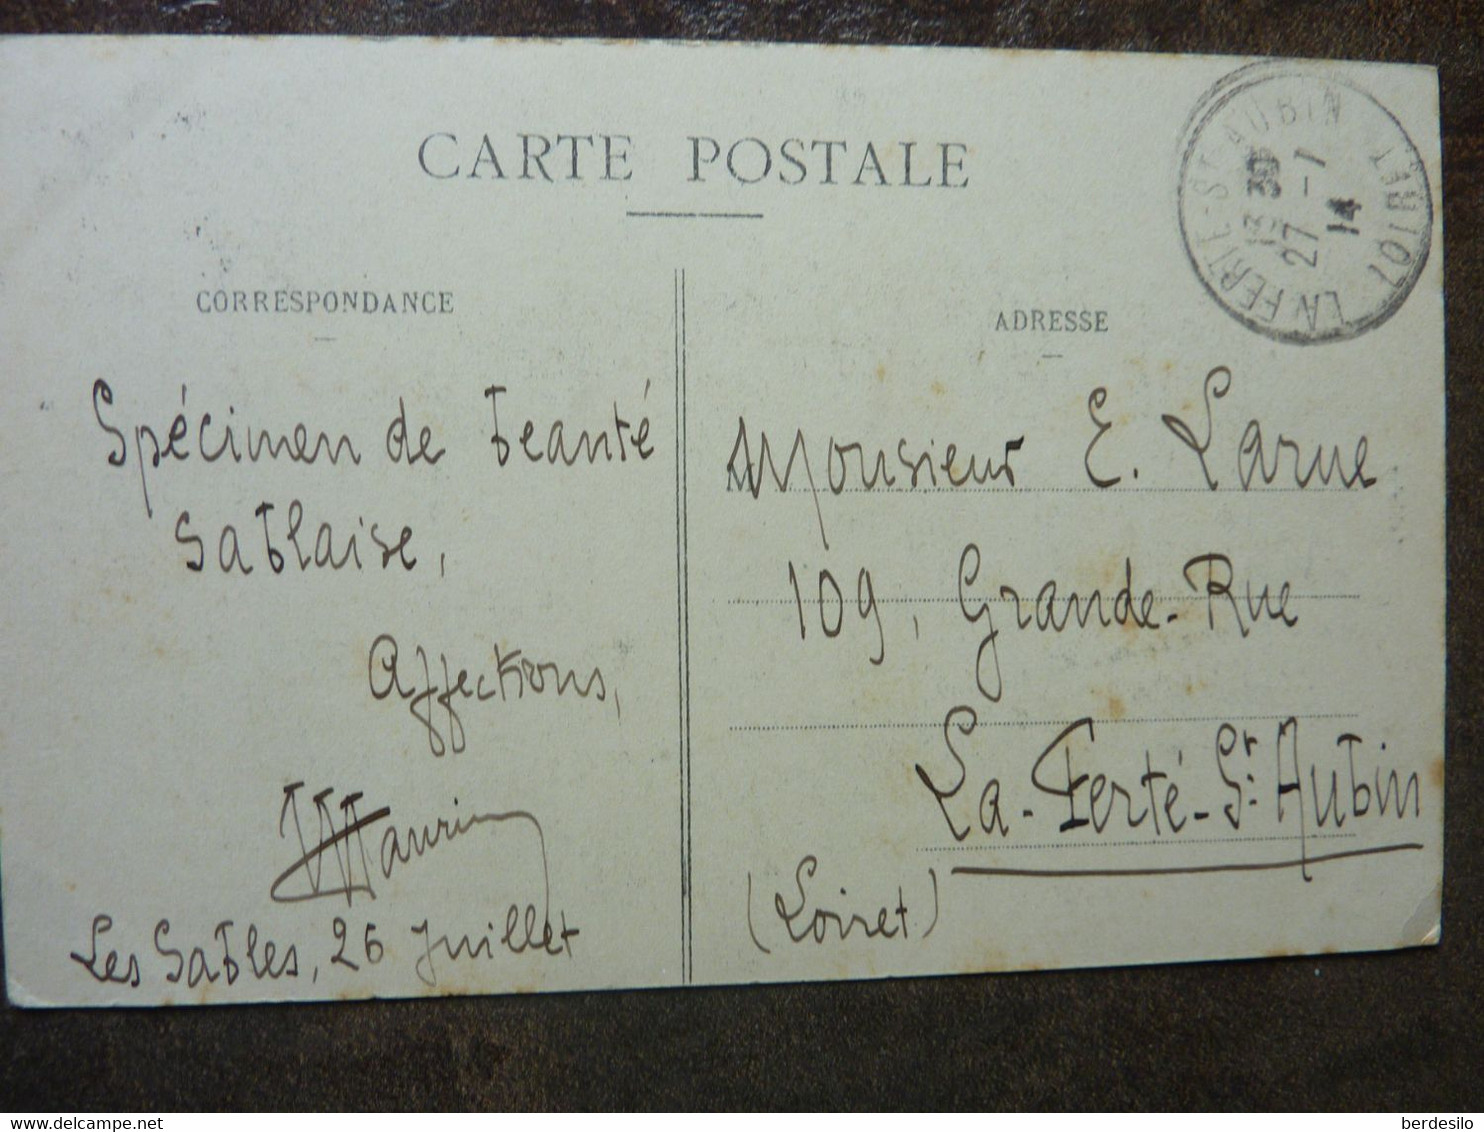 CARTE POSTALE
CORRESPONDANCE
Spécimen de beauté
sablaise,
Affections,
Les Sables, 26 Juillet
ADRESSE
Monsieur E. Larue
109, Grande-Rue
La-Ferté-St. Aubin
(Loiret)
LA FERTE-ST AUBIN LOIRET
13 30
27 -7
14
berdesilo